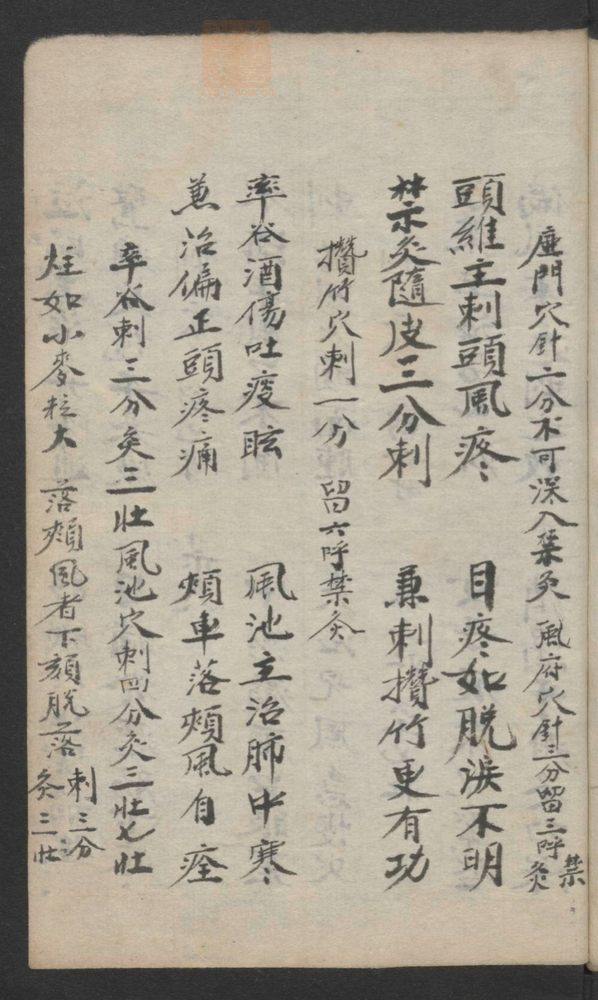 瘂門穴針二分不可深入禁灸　風府穴針三分留三呼禁灸
頭維主刺頭風疼　目疼如脫淚不明
禁灸隨皮三分刺　兼刺攢竹更有功
攢竹穴刺一分　留六呼禁灸
率谷酒傷吐痰眩　風池主治肺中寒
兼治偏正頭疼痛　頰車落頰風自痊
率谷刺三分灸三壯風池穴刺四分灸三壯七壯
炷如小麥粒大　落頰風者下頦脫落刺三分
灸三壯